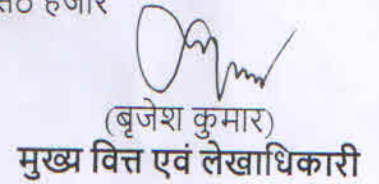 हजार
(बृजेश कुमार)
मुख्य वित्त एवं लेखाधिकारी